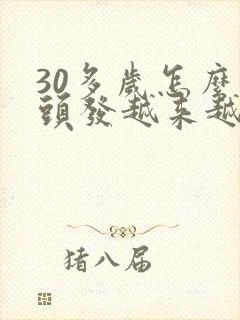 30多歲怎麼
頭發越來越
猪八届